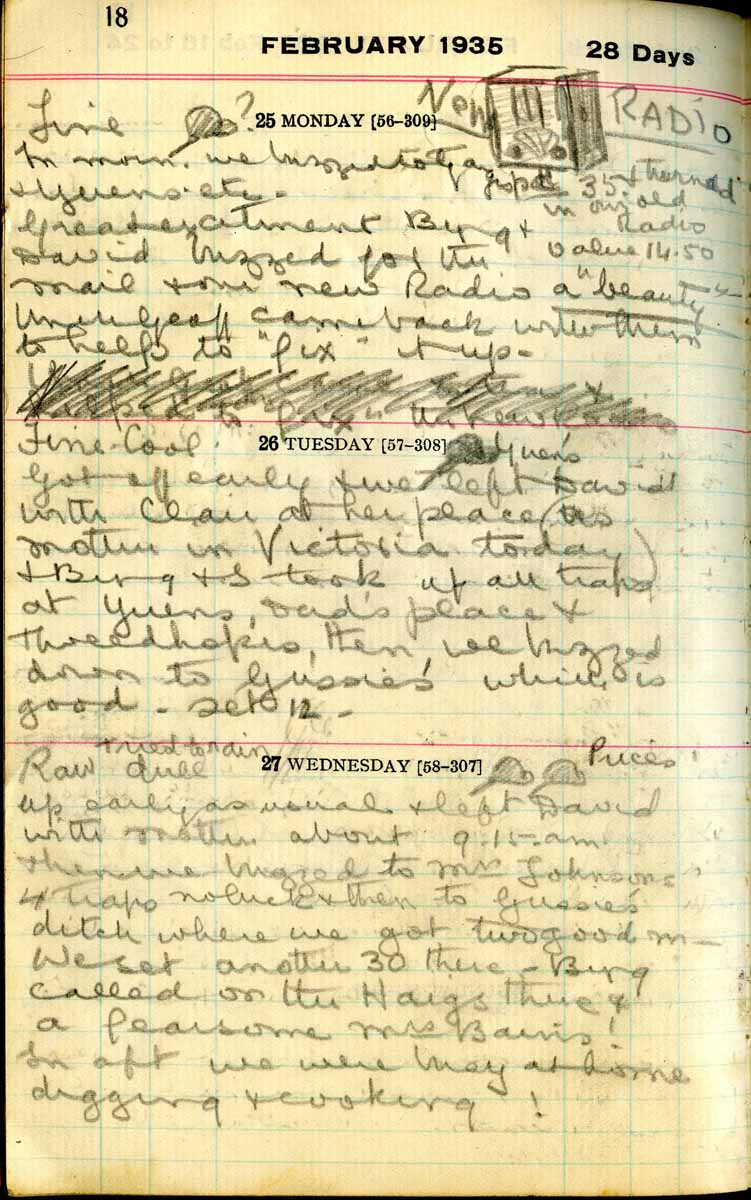 18
FEBRUARY 1935 28 Days
Fine ? 25 MONDAY [56–309] New RADIO
In morn. we buzzed to
& Yuens etc. for 35. & turned
in our old
Great excitement Burg & Radio
value 14.50
David buzzed for the
mail & our new Radio a "beauty"
Uncle Geoff came back with them
to help to "fix" it up –
Fine Cool. 26 TUESDAY [57–308] Yuens
Got off early & we left David
with Clair at her place (his
mother in Victoria today)
& Burg & I took up all traps
at Yuens, Dad's place &
Tweedhopes, then we buzzed
down to Gussie's which is
good – set 12 –
tried to rain
Raw dull 27 WEDNESDAY [58–307] Prices
up early as usual & left David
with mother about 9.15 am
then we buzzed to Mrs Johnsons'
4 traps no luck & then to Gussie's
ditch where we got two good m—
We set another 30 there – Burg
called on the Haigs there &
a fearsome Mrs Bains!
In aft we were busy at home
digging & cooking !